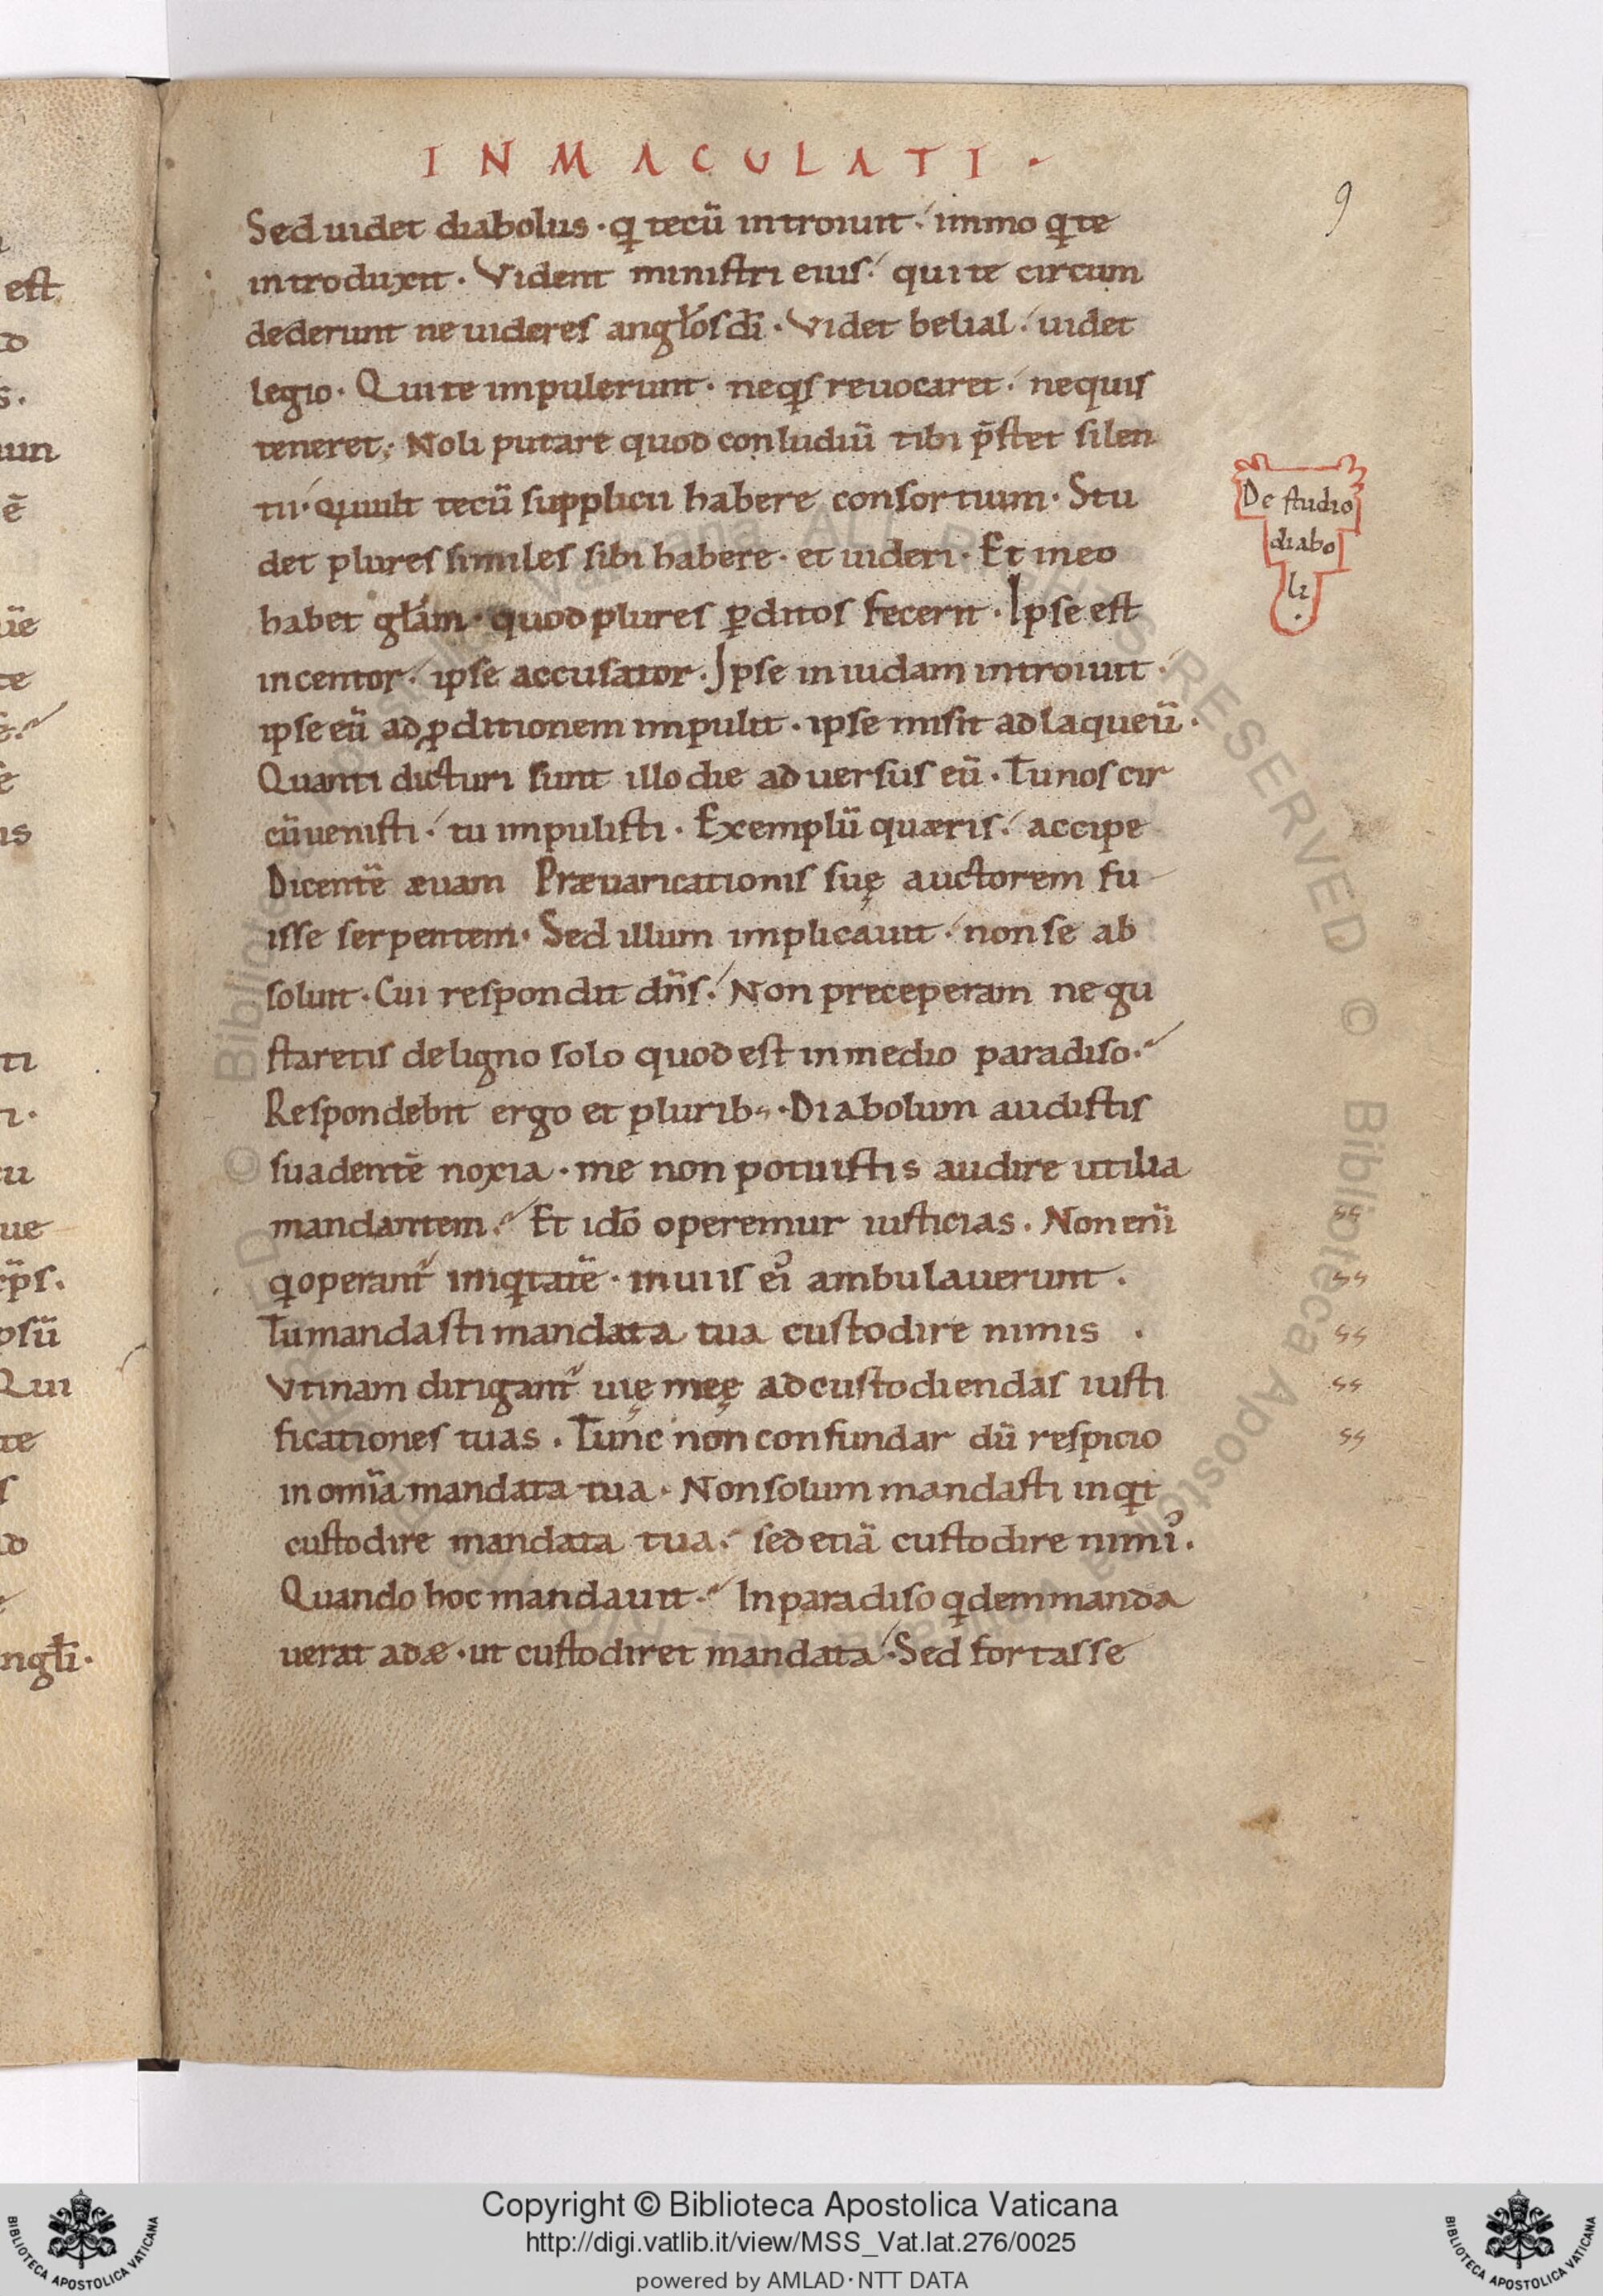 est
INMACULATI·
9
Sed uidet diabolus· q tecū introiuit·́ immo q te
introduxit· Vident ministri eius·́ qui te circum
dederunt ne uideres angłos dī· Videt belial·́ uidet
legio· Qui te impulerunt· neqs reuocaret·́ nequis
teneret; Noli putare quod conludiū tibi p̄stet silen
tii· quiuult tecū supplicii habere consortium· Stu
det plures similes sibi habere· et uideri· Et in eo
habet głam· quod plures ꝑditos fecerit· Ipse est
incentor·́ ipse accusator· Ipse in iudam introiuit·́
ipse eū ad ꝑditionem impulit· ipse misit ad laqueū·
Quanti dicturi sunt illo die aduersus eū· Tu nos cir
cūuenisti·́ tu impulisti· Exemplū quæris·́ accipe
Dicentē æuam Præuaricationis suę auctorem fu
isse serpentem· Sed illum implicauit·́ non se ab
soluit· Cui respondit dn̄s·́ Non preceperam ne gu
staretis de ligno solo quod est in medio paradiso·́
Respondebit ergo et plurib;· Diabolum audistis
suadentē noxia· me non potuistis audire utilia
mandantem·́ Et idō operemur iusticias· Non eni̅
q operant̄ iniqtatē· in uiis eiꝰ ambulauerunt·
Tu mandasti mandata tua custodire nimis ·
Vtinam dirigant̄ uię meę ad custodiendas iusti
ficationes tuas· Tunc non confundar dū respicio
in om̄ia mandata tua· Non solum mandasti inqt
custodire mandata tua·́ sed etiā custodire nimꝰ·
Quando hoc mandauit·́ In paradiso qdem manda
uerat adæ· ut custodiret mandata·́ Sed fortasse
De studio
diabo
li
·
ss
ss
ss
ss
ss
© Biblioteca Apostolica Vaticana ALL RIGHTS RESERVED
Copyright © Biblioteca Apostolica Vaticana
http://digi.vatlib.it/view/MSS_Vat.lat.276/0025
powered by AMLAD·NTT DATA
BIBLIOTECA APOSTOLICA VATICANA
BIBLIOTECA APOSTOLICA VATICANA